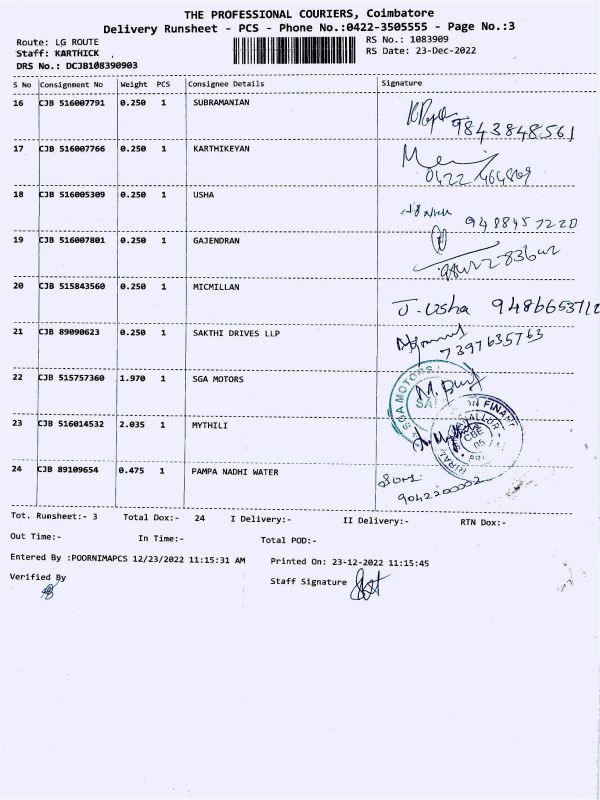 THE PROFESSIONAL COURIERS, Coimbatore
Delivery Runsheet - PCS - Phone No.:0422-3505555 - Page No.:3
Route: LG ROUTE RS No.: 1083909
Staff: KARTHICK , RS Date: 23-Dec-2022
DRS No.: DCJB108390903
S No Consignment No Weight PCS Consignee Details Signature
16 CJB 516007791 0.250 1 SUBRAMANIAN
9843848561
17 CJB 516007766 0.250 1 KARTHIKEYAN
0422
18 CJB 516005309 0.250 1 USHA
9488457220
19 CJB 516007801 0.250 1 GAJENDRAN
20 CJB 515843560 0.250 1 MICMILLAN
J. Usha
21 CJB 89090623 0.250 1 SAKTHI DRIVES LLP
7397635763
22 CJB 515757360 1.970 1 SGA MOTORS
SGA MOTORS
23 CJB 516014532 2.035 1 MYTHILI
CBE
24 CJB 89109654 0.475 1 PAMPA NADHI WATER
9042200002
Tot. Runsheet:- 3 Total Dox:- 24 I Delivery:- II Delivery:- RTN Dox:-
Out Time:- In Time:- Total POD:-
Entered By :POORNIMAPCS 12/23/2022 11:15:31 AM Printed On: 23-12-2022 11:15:45
Verified By Staff Signature